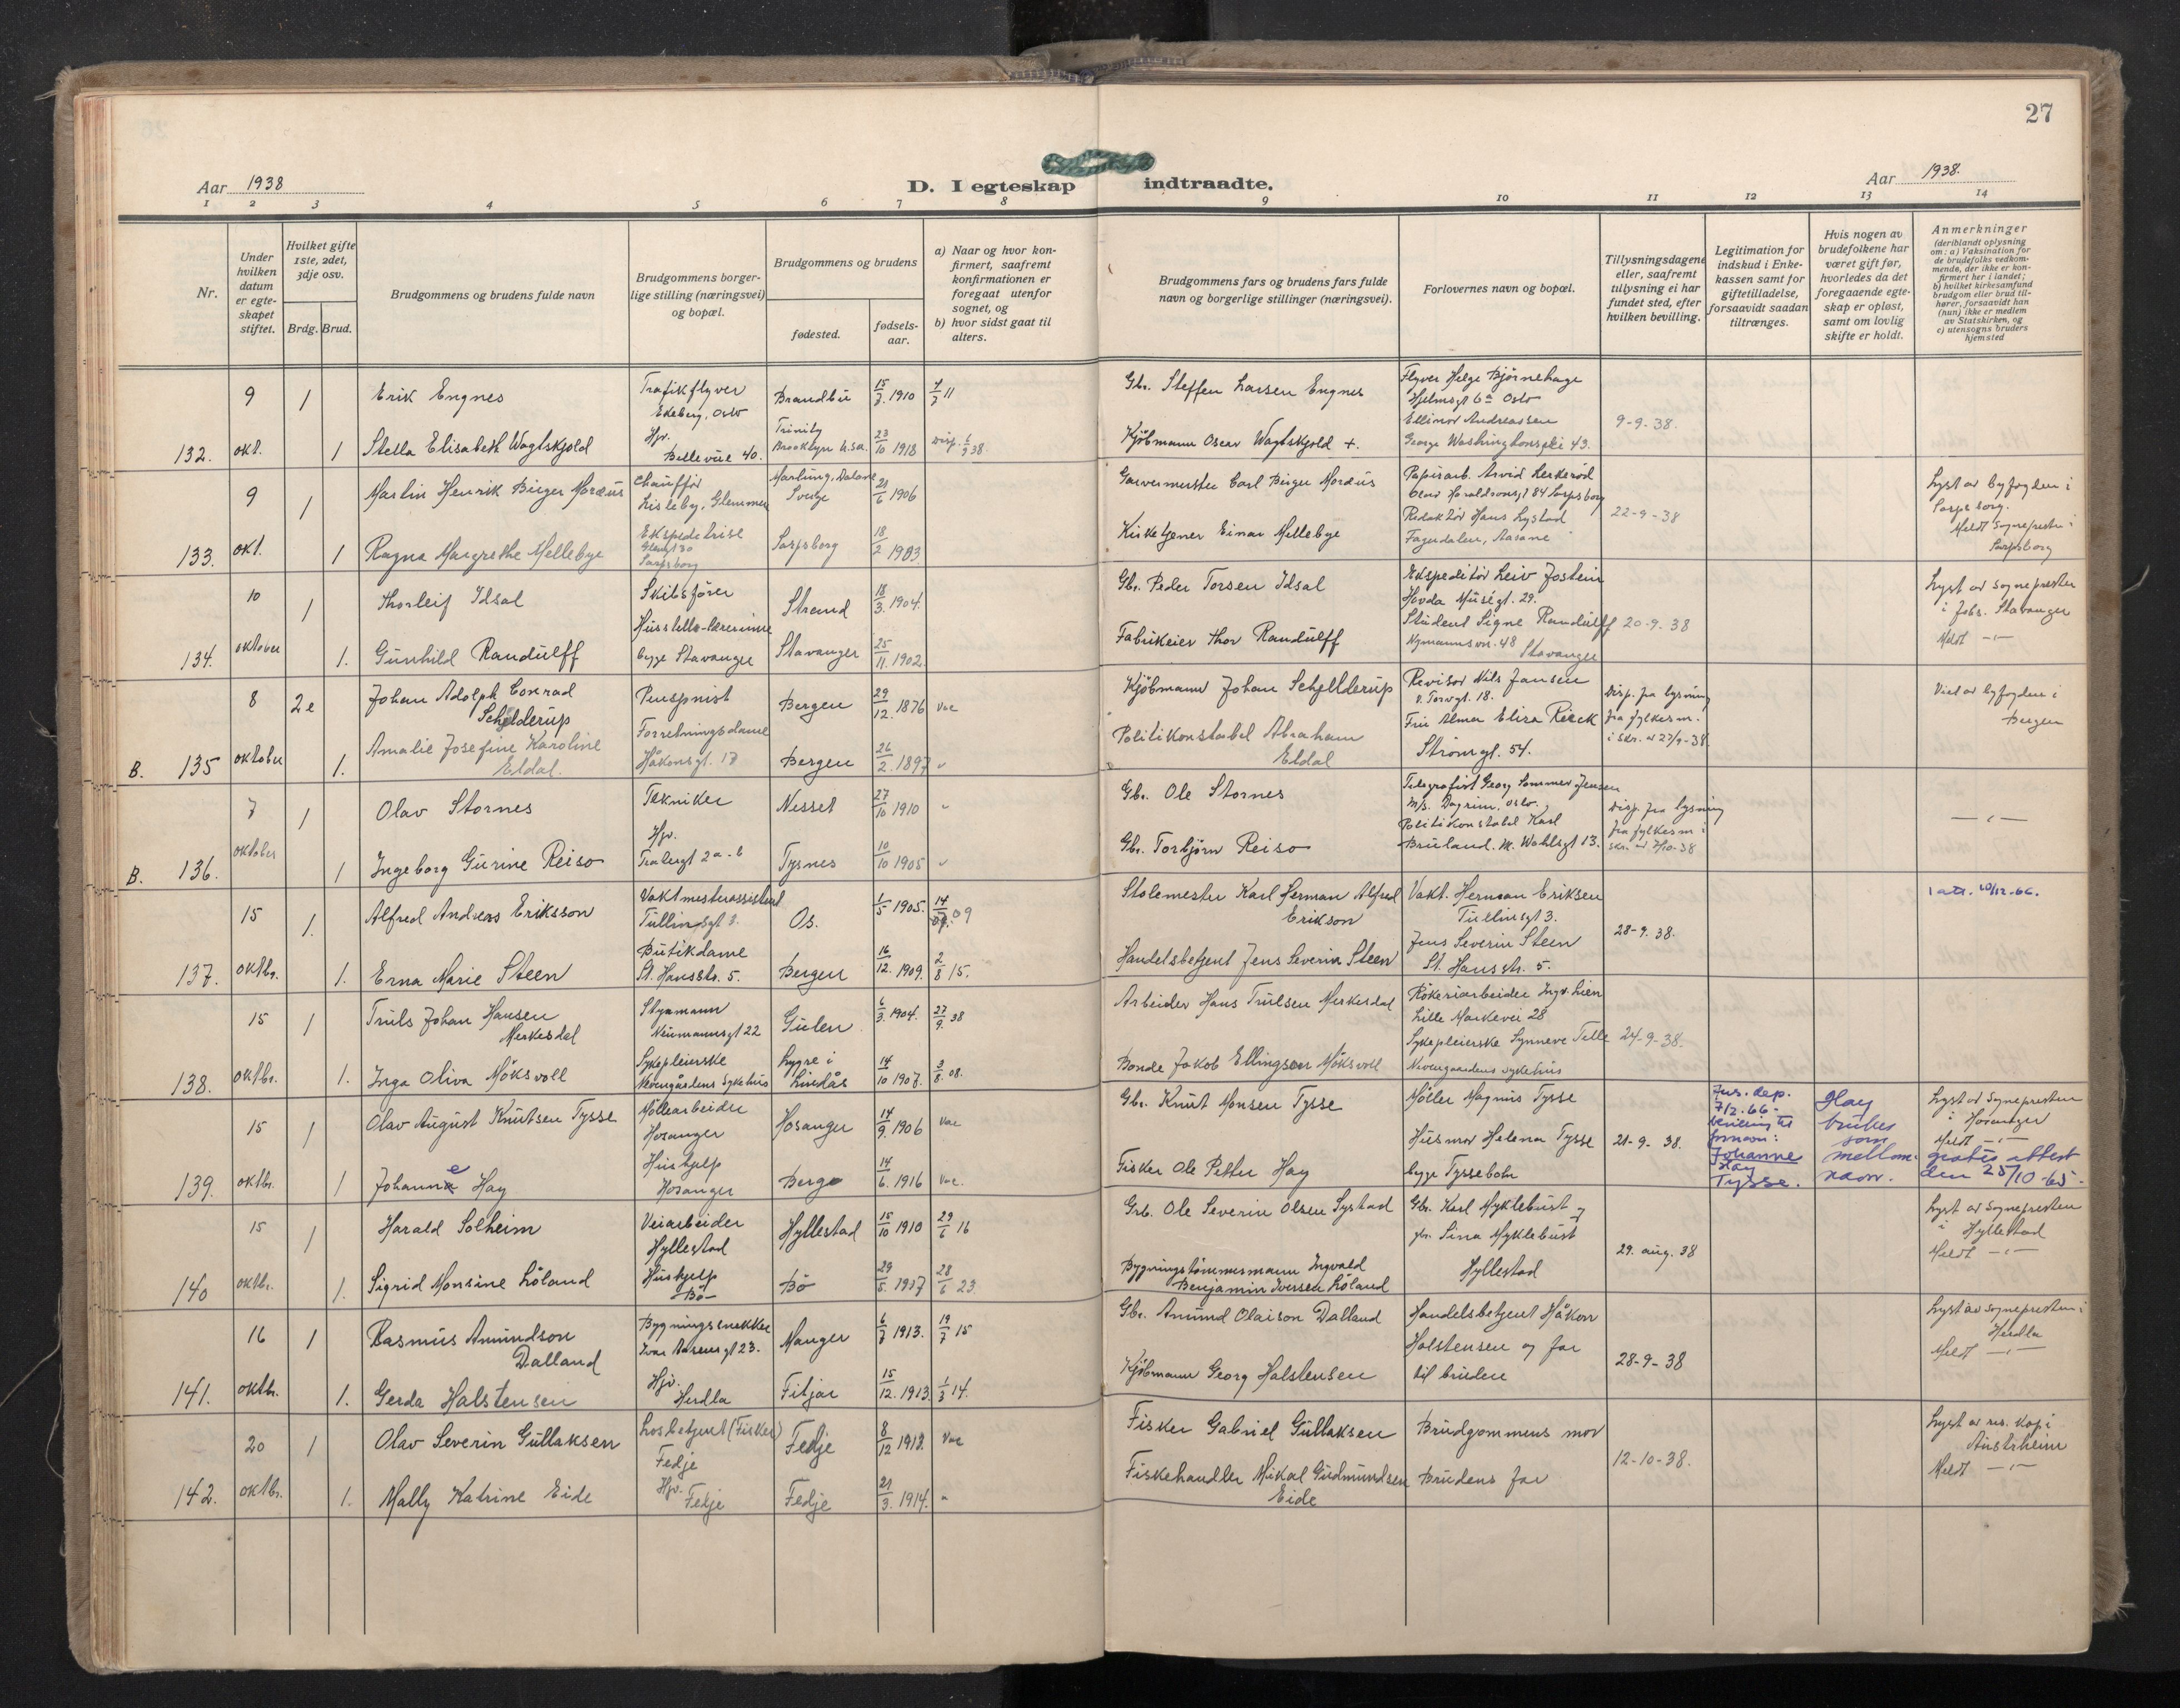 27
Aar 1938
D. I egteskap indtraadte.
Aar 1938.
1 2 3 4 5 6 7 8 9 10 11 12 13 14
Nr.
Under hvilken datum er egteskapet stiftet.
Hvilket gifte 1ste, 2det, 3dje osv.
Brdg. Brud.
Brudgommens og brudens fulde navn
Brudgommens borgerlige stilling (næringsvei) og bopæl.
Brudgommens og brudens
fødested.
fødselsaar.
a) Naar og hvor konfirmert, saafremt konfirmationen er foregaat utenfor sognet, og
b) hvor sidst gaat til alters.
Brudgommens fars og brudens fars fulde navn og borgerlige stillinger (næringsvei).
Forlovernes navn og bopæl.
Tillysningsdagene eller, saafremt tillysning ei har fundet sted, efter hvilken bevilling.
Legitimation for indskud i Enkekassen samt for giftetilladelse, forsaavidt saadan tiltrænges.
Hvis nogen av brudefolkene har været gift før, hvorledes da det foregaaende egteskap er opløst, samt om lovlig skifte er holdt.
Anmerkninger
(deriblandt oplysning om: a) Vaksination for de brudefolks vedkommende, der ikke er konfirmert her i landet; b) hvilket kirkesamfund brudgom eller brud tilhører, forsaavidt han (hun) ikke er medlem av Statskirken, og c) utensogns bruders hjemsted
9 1 Erik Engnes Trafikflyver Ekeberg, Oslo Brandbu 15/3. 1910 Gbr. Steffen Larsen Engnes Flyver Helge Bjørnehage Hjelmsgt 6a Oslo
132. okt. 1 Stella Elisabeth Wagtskjold Hjv. Bellevue 40. Trinity Brooklyn U.S.A. 23/10 1918 Kjøbmann Oscar Wagtskjold +. Ellinor Andreassen George Washingtonspl 43. 9-9-38.
9 1 Martin Henrik Birger Moræus Chauffør Lisleby, Glemmen Sverge 21/6 1906 Garvermester Carl Birger Moræus Papirarb. Arvid Lerkerød Olav Haraldsonsgt 84 Sarpsborg Lyst av byfogden i Sarpsborg.
133. okt. 1 Ragna Margrethe Mellebye Ekspeditrise Sarpsborg Sarpsborg 18/2 1903. Kirketjener Einar Mellebye Redaktør Hans Lystad Fagerdalen, Aasane 22-9-38 Meldt Sognepresten i Sarpsborg
10 1 Thorleif Idsal Skibsfører Strand 18/3. 1904. Gbr. Peder Torsen Idsal Ekspeditør Leiv Jostein Hovda Muségt. 29. Lyst av sognepresten i Joh. Stavanger
134. oktober 1. Gunhild Randulff Husstell-lærerinne begge Stavanger Stavanger 25/11. 1902. Fabrikeier Thor Randulff Student Signe Randulff Nymannsvn. 48 Stavanger 20-9-38 Meldt -"-
8 2e Johan Adolph Conrad Schjelderup Pensjonist Bergen 29/12. 1876 Vae Kjøbmann Johan Schjelderup Revisor Nils Jansen Torvgt. 18. Disp. fra lysning fra fylkesm. i skr. av 27/9-38. Viet av byfogden i Bergen
B. 135 oktober 1. Amalie Josefine Karoline Eldal. Forretningsdame Håkonsgt. 17 Bergen 26/2. 1897 " Politikonstabel Abraham Eldal Fru Alma Eliza Rieck Strømgt. 54.
7 1 Olav Stornes Tekniker Nesset 27/10 1910 " Gbr. Ole Stornes Telegrafist Georg Sommer Jensen m/s. Dagrun. Oslo. Disp. fra lysning fra fylkesm i skr. av 7/10-38 -"-
B. 136. oktober 1 Ingeborg Gurine Reiso Hjv. Tysnes 10/10 1905 " Gbr. Torbjørn Reiso Politikonstabel Karl Bruland. M. Wahlsgt 13.
15 1. Alfred Andreas Eriksson Vaktmesterassistent Tullinsgt 3. Os. 1/5 1905. Stolemester Karl Herman Alfred Erikson Vakt. Herman Eriksen Tullinsgt 3. 28-9.38. 1 att. 20/12.-66.
137. oktbr. 1. Erna Marie Steen Butikdame St. Hansstr. 5. Bergen 16/12. 1909. 2/8 15. Handelsbetjent Jens Severin Steen Jens Severin Steen St. Hansstr. 5.
15 1 Truls Johan Hansen Merkesdal Styrmann Neumannsgt 22 Gulen 6/3. 1904. 27/9. 38 Arbeider Hans Trulsen Merkesdal Røkeriarbeider Ingv. Lien Lille Markevei 28 24-9-38.
138. oktbr. 1. Inga Oliva Möksvoll Sykepleierske Nevengårdens Sykehus Lygre i Lindås 14/10 1907. 3/8. 08. Bonde Jakob Ellingsen Möksvoll Sykepleierske Synneve Telle Nevengaardens sykehus
15 1 Olav August Knutsen Tysse Møllearbeider Hosanger Hosanger 14/9. 1906 Vae Gbr. Knut Monsen Tysse Møller Magnus Tysse 21-9-38. Jus. dep. 7/2.66- bevilling til fornavn: Johanne Hay Tysse. Hay brukes som mellomnavn. Lyst av Sognepresten i Hosanger Meldt -"-
139. oktbr. 1 Johanna e Hay Hushjelp Hosanger Berge 14/6. 1916 Vae. Fisker Ole Petter Hay Husmor Helena Tysse begge Tyssebotn gratis attest den 25/10-65.
15 1 Harald Solheim Veiarbeider Hyllestad Hyllestad 15/10 1910 29/6 16 Grb. Ole Severin Olsen Systad Gbr. Karl Myklebust og fr. Sina Myklebust Hyllestad 29. aug. 38 Lyst av Sognepresten i Hyllestad Meldt -"-
140 oktbr. 1. Sigrid Monsine Løland Hushjelp Bø Bø 29/5. 1907 28/6 23. Bygningstømmermann Ingvald Benjamin Iversen Løland
16 1 Rasmus Amundson Dalland Bygningssnekker Ivar Aasensgt 23. Manger 6/7 1913. 19/7 15 Gbr. Amund Olaison Dalland Handelsbetjent Håkon Halstensen og far til bruden 28-9-38 Lyst av sognepresten i Herdla Meldt -"-
141. oktbr. 1. Gerda Halstensen Hjv. Herdla Fitjar 15/12. 1913. 1/3 14. Kjøbmann Georg Halstensen
20 1 Olav Severin Gullaksen Losbetjent (Fisker) Fedje Fedje 8/12 1912. Vae Fisker Gabriel Gullaksen Brudgommens mor 12-10-38. Lyst av res. kap i Austrheim Meldt -"-
142. oktbr. 1. Mally Katrine Eide Hjv. Fedje Fedje 21/3. 1914. " Fiskehandler Mikal Gudmundsen Eide Brudens far